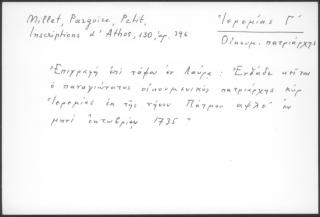 Millet, Pargoire, Petit.
Inscriptions d'Athos, 130, ἀρ. 396
Ἱερεμίας Γ΄
Οἰκουμ. πατριάρχης
Ἐπιγραφὴ ἐπὶ τάφου ἐν Λαύρα: "Ἐνθάδε κεῖται
ὁ παναγιώτατος οἰκουμενικὸς πατριάρχης κύρ
Ἱερεμίας ἐκ τῆς νήσου Πάτμου αψλε΄ ἐν
μηνὶ ὀκτωβρίου 1735"